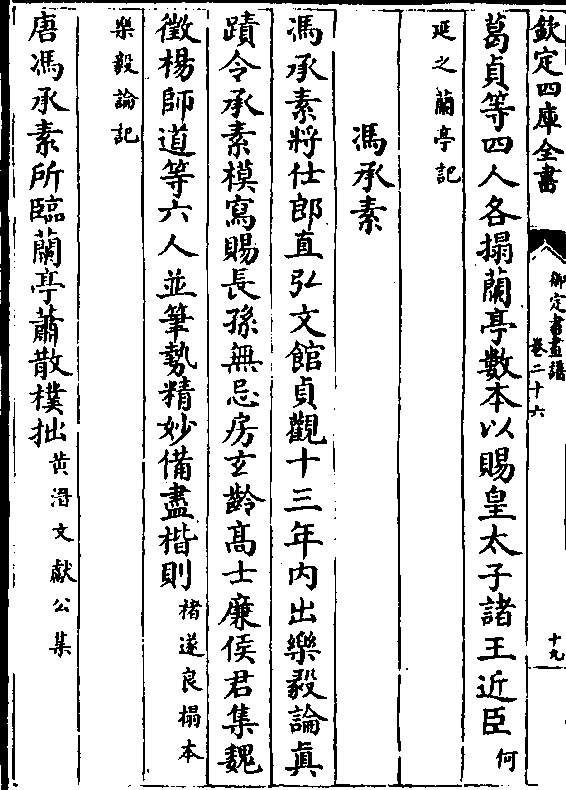 欽定四庫全書
御定書畫譜
卷二十六
十九
葛貞等四人各搨蘭亭數本以賜皇太子諸王近臣何
延之蘭亭記
馮承素
馮承素將仕郎直弘文館貞觀十三年內出樂毅論真
蹟令承素模寫賜長孫無忌房玄齡高士廉侯君集魏
徵楊師道等六人並筆勢精妙備盡楷則褚遂良搨本
樂毅論記
唐馮承素所臨蘭亭蕭散樸拙黄溍文獻公集